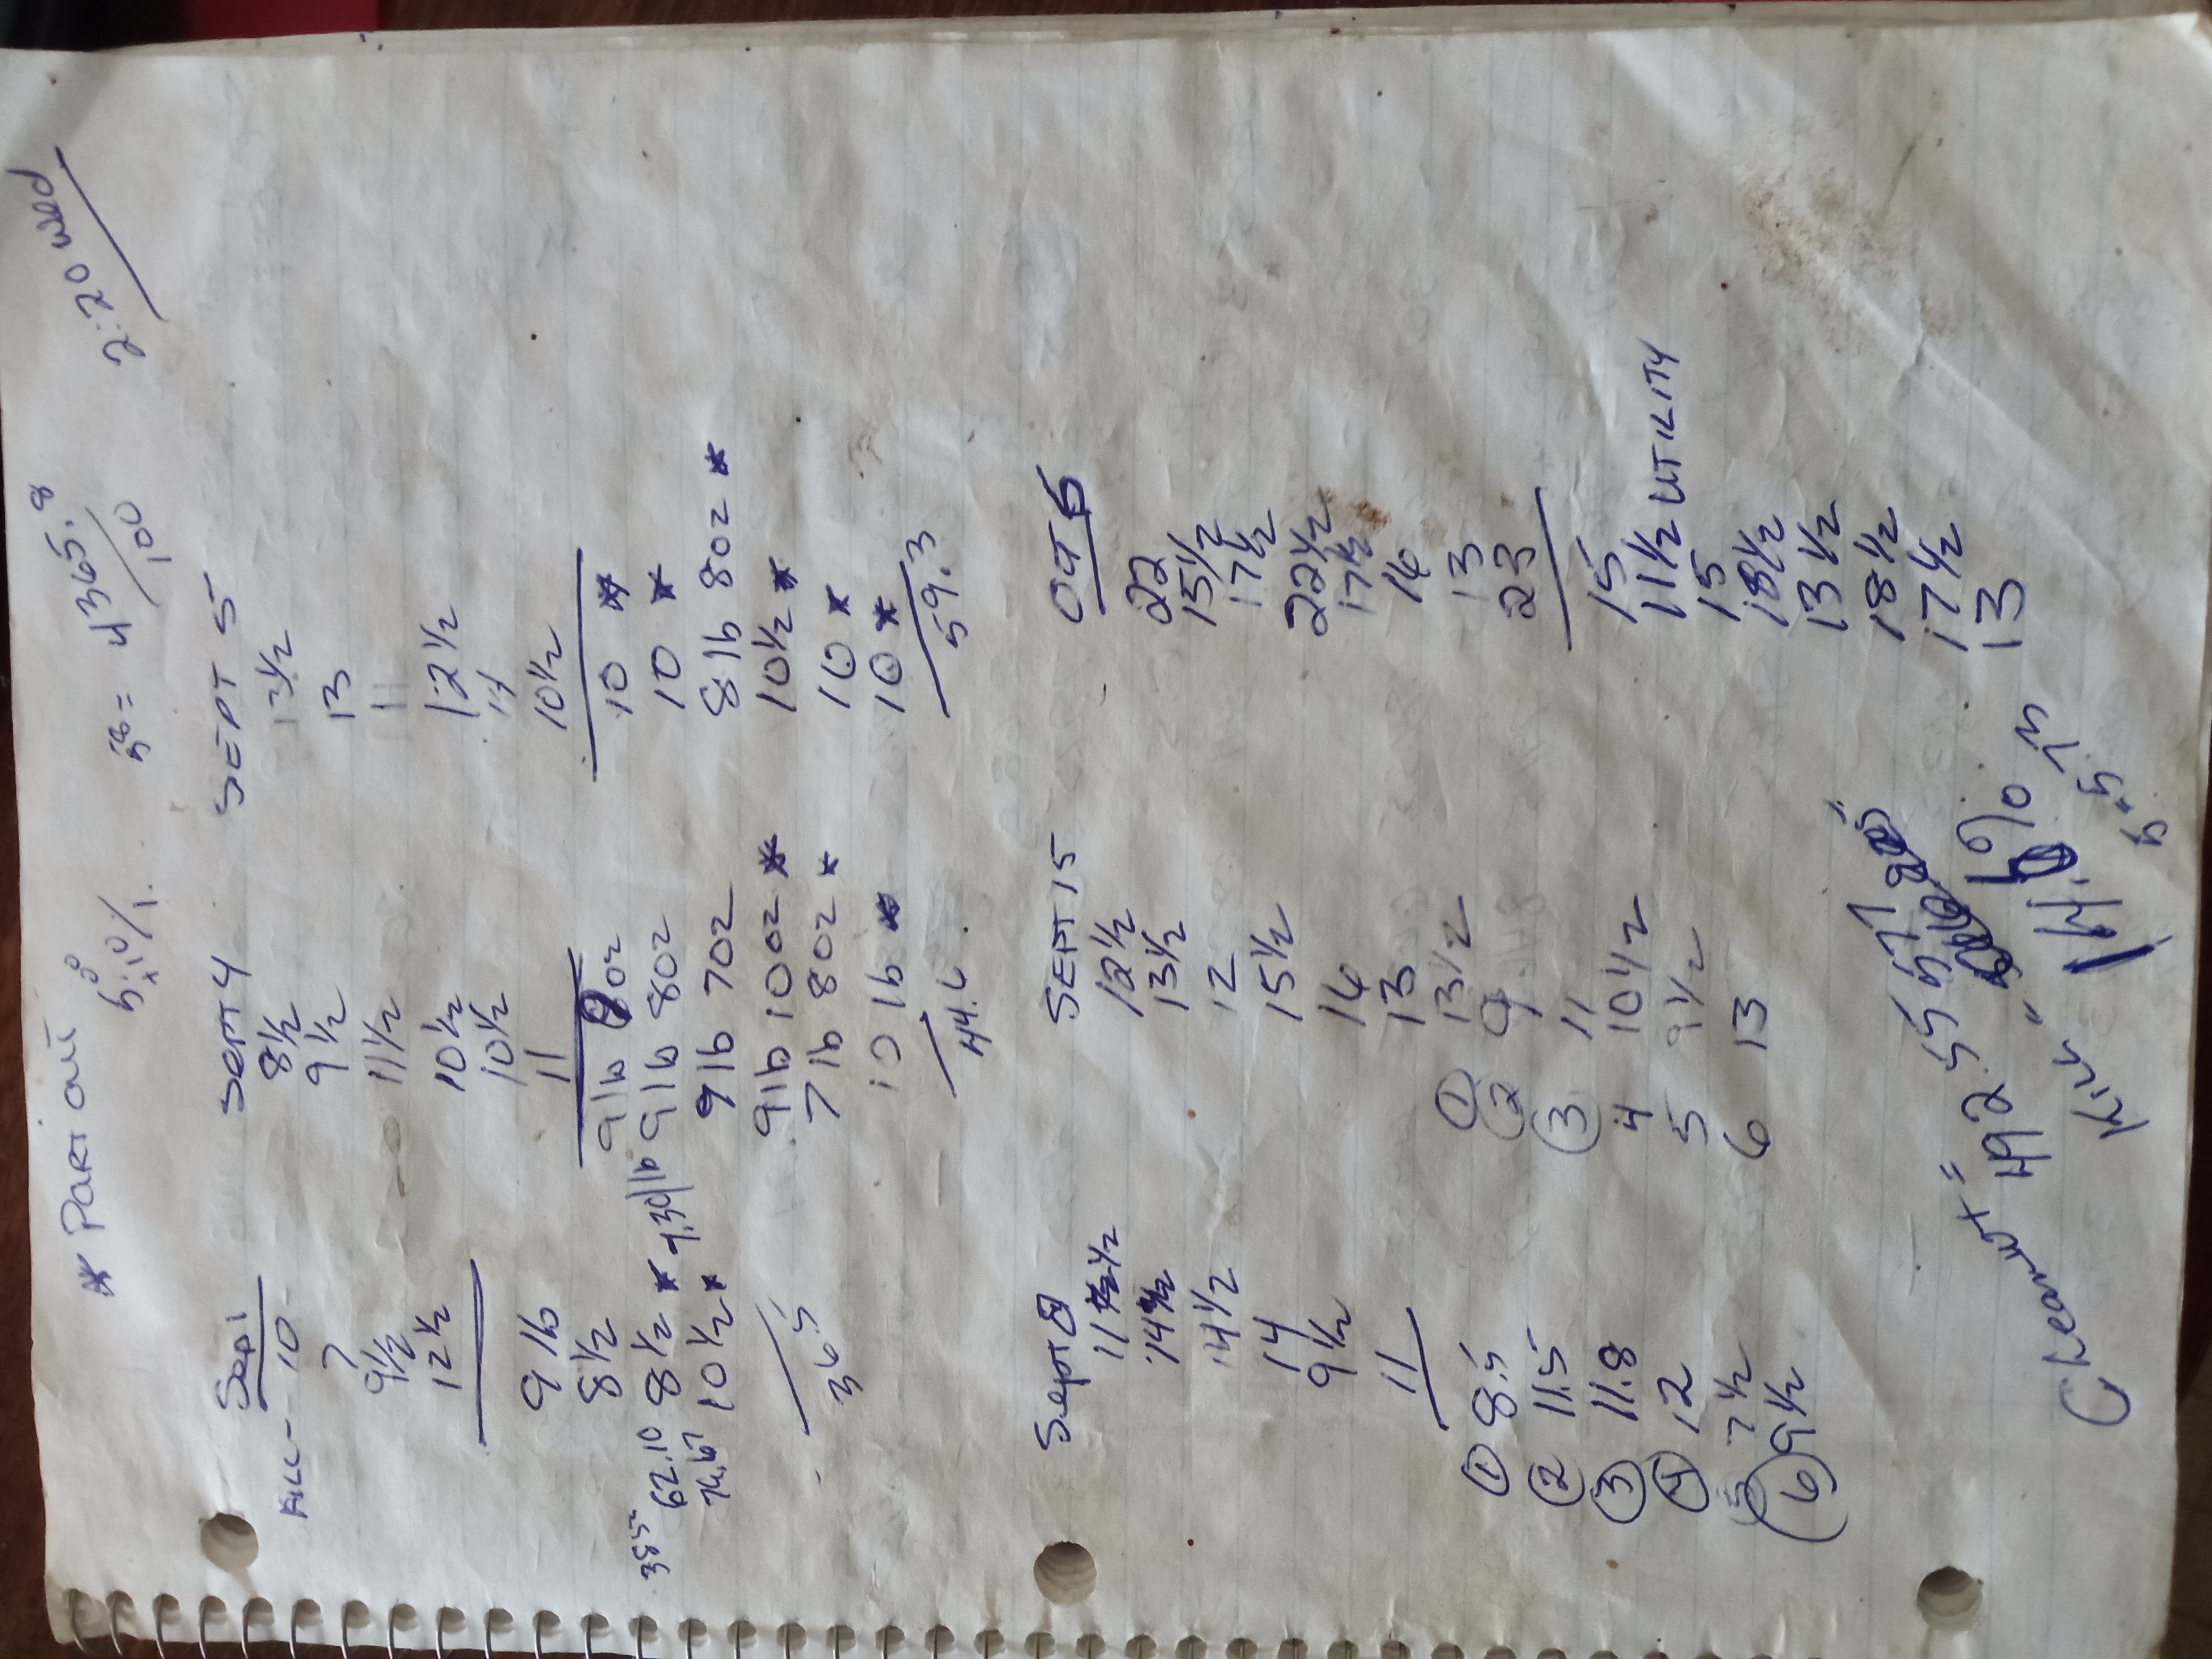 * PART OUT
2:20 WED
= 4365.8
100
Sept 1
10
?
9 1/2
12 1/2
9 lb
8 1/2
62.10 8 1/2 *
10 1/2 *
36.5
SEPT 4
8 1/2
9 1/2
11 1/2
10 1/2
10 1/2
11
9 lb 8oz
9 lb 7oz
9 lb 10oz *
7 lb 8oz *
10 lb *
SEPT 5
13 1/2
13
11
12 1/2
11
10 1/2
10 *
10 *
8 lb 8oz *
10 1/2 *
10 *
10 *
59.3
Sept 8
11 1/2
14 1/2
14 1/2
14
9 1/2
11
① 8.5
② 11.5
③ 11.8
④ 12
5 7 1/2
⑥ 9 1/2
SEPT 15
12 1/2
13 1/2
12
15 1/2
14
13
① 13 1/2
② 9
③ 11
4 10 1/2
5 9 1/2
6 13
OCT 5
22
15 1/2
17 1/2
22 1/2
17 1/2
16
13
23
15
11 1/2 UTILITY
15
18 1/2
13 1/2
18 1/2
17 1/2
13
Clean wt =
492.5